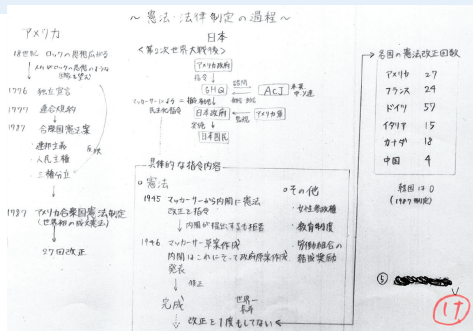 ～憲法・法律制定の過程～
アメリカ
18世紀 ロックの思想広がる
1776 独立宣言
1777 連合規約
1787 合衆国憲法案
・連邦主義
・人民主権
・三権分立
反映
1787 アメリカ合衆国憲法制定
(世界初の成文憲法)
27回改正
日本
<第2次世界大戦後>
アメリカ政府
指令
GHQ
諮問
ACJ
米英
中ソ連
マッカーサーによる
民主化指令
日本政府
アメリカ軍
日本国民
具体的な指令内容
○憲法
1945 マッカーサーから内閣に憲法
改正を指令
内閣が提出するも拒否
1946 マッカーサー草案作成
内閣はこれにそって政府原案作成
発表
修正
完成
世界一
改正を1度もしてない
○その他
・女性参政権
・教育制度
・労働組合の
結成奨励
各国の憲法改正回数
アメリカ 27
フランス 24
ドイツ 57
イタリア 15
カナダ 18
中国 4
韓国は0
(1987制定)
⑤
1け